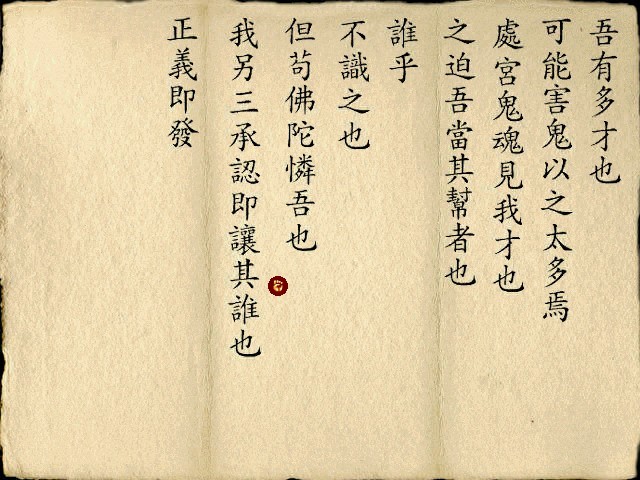 吾有多才也
可能害鬼以之太多焉
處宮鬼魂見我才也
之迫吾當其幫者也
誰乎
不識之也
但苟佛陀憐吾也
我另三承認即讓其誰也
正義即發